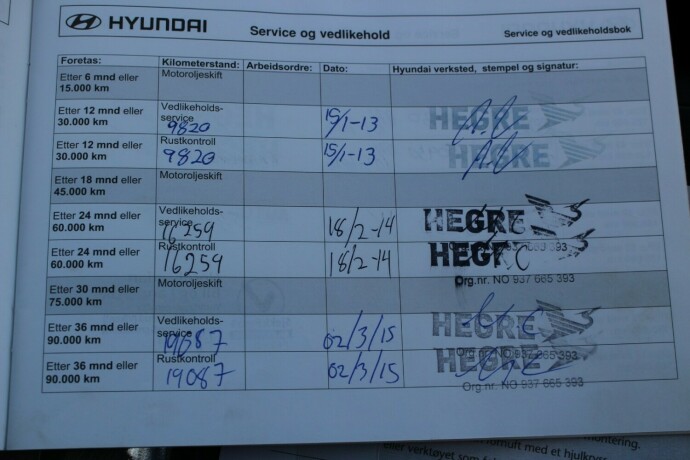 HYUNDAI
Service og vedlikehold
Service og vedlikeholdsbok
Foretas: Kilometerstand: Arbeidsordre: Dato: Hyundai verksted, stempel og signatur:
Etter 6 mnd eller Motoroljeskift
15.000 km
Etter 12 mnd eller Vedlikeholds-
30.000 km service
9820 15/1-13 HEGRE
Etter 12 mnd eller Rustkontroll
30.000 km 9820 15/1-13 HEGRE
Etter 18 mnd eller Motoroljeskift
45.000 km
Etter 24 mnd eller Vedlikeholds-
60.000 km service
16259 18/2-14 HEGRE
Org.nr. NO 937 665 393
Etter 24 mnd eller Rustkontroll
60.000 km 16259 18/2-14 HEGRE
Org.nr. NO 937 665 393
Etter 30 mnd eller Motoroljeskift
75.000 km
Etter 36 mnd eller Vedlikeholds-
90.000 km service
19087 02/3/15 HEGRE
Org.nr. NO 937 665 393
Etter 36 mnd eller Rustkontroll
90.000 km 19087 02/3/15 HEGRE
Org.nr. NO 937 665 393